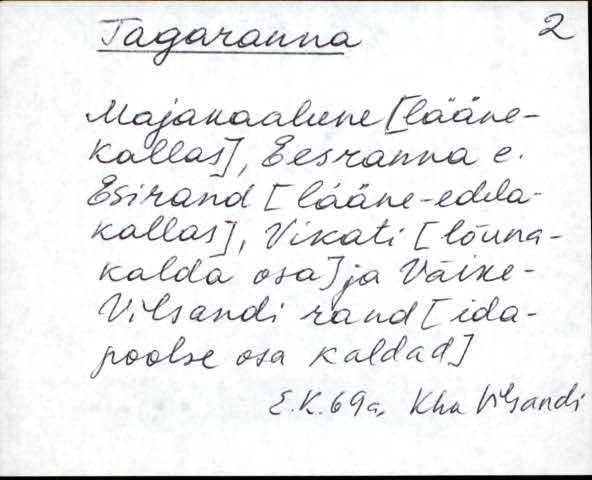 Tagaranna 2
Majakaalune [lääne-
kallas], Eesranna e.
Esirand [lääne-edela-
kallas], Vikati [lõuna-
kalda osa] ja Väike-
Vilsandi rand [ida-
poolse osa kaldad]
E.K.69a, Khn Vilsandi